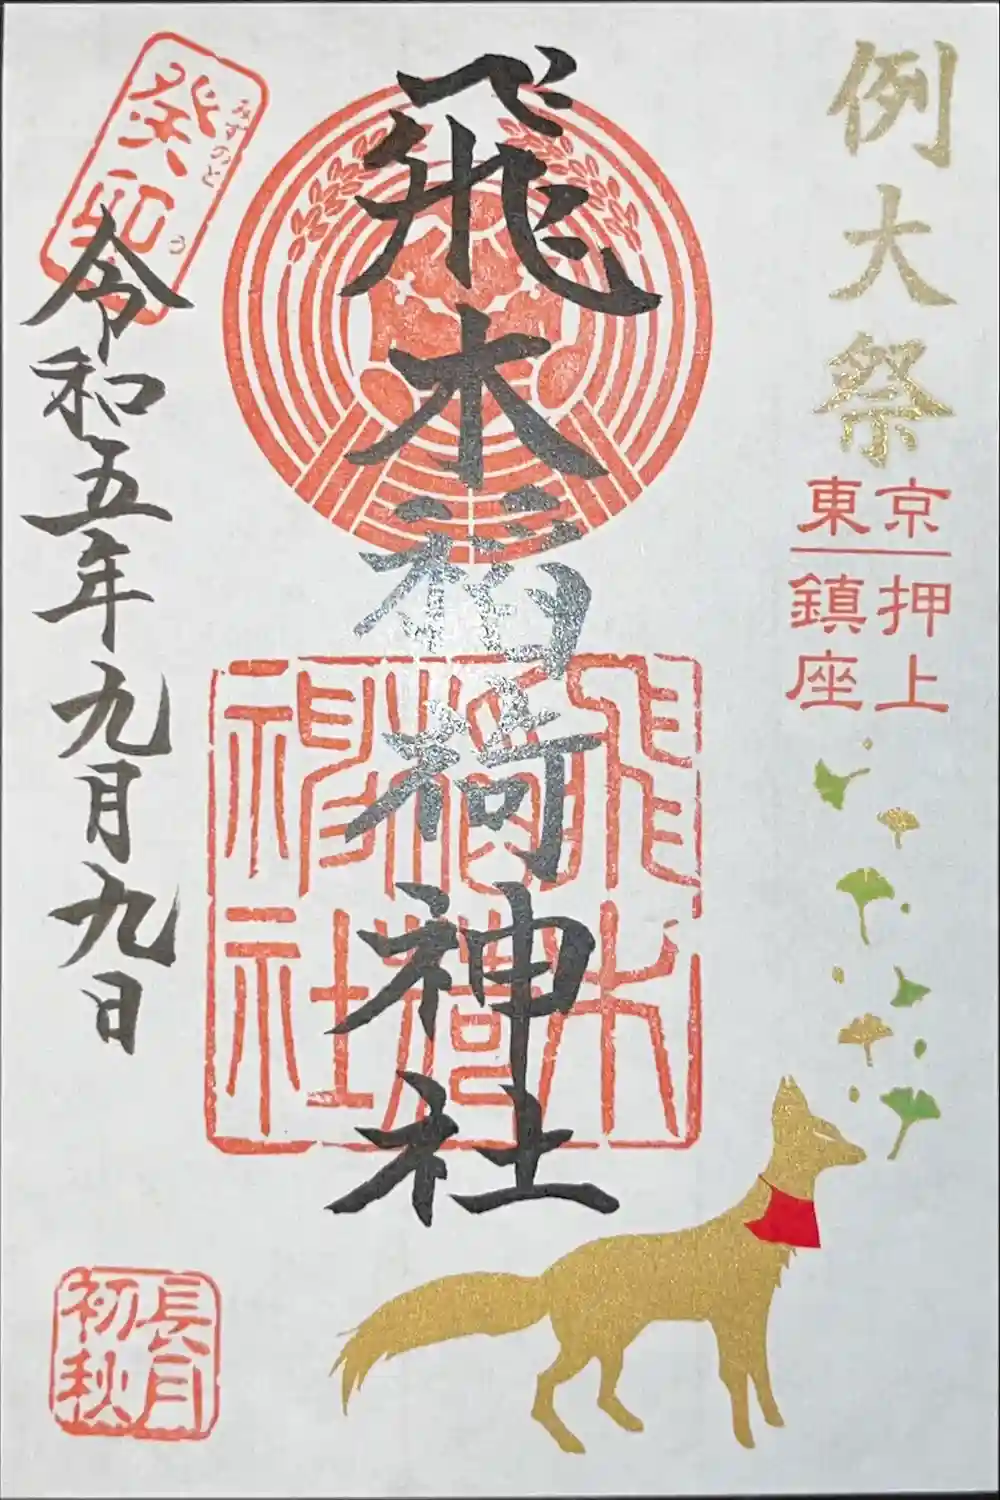 例大祭
東京
押上
鎮座
飛木稲荷神社
飛木
稲荷
神社
癸卯
みずのと う
令和五年九月九日
長月
初秋